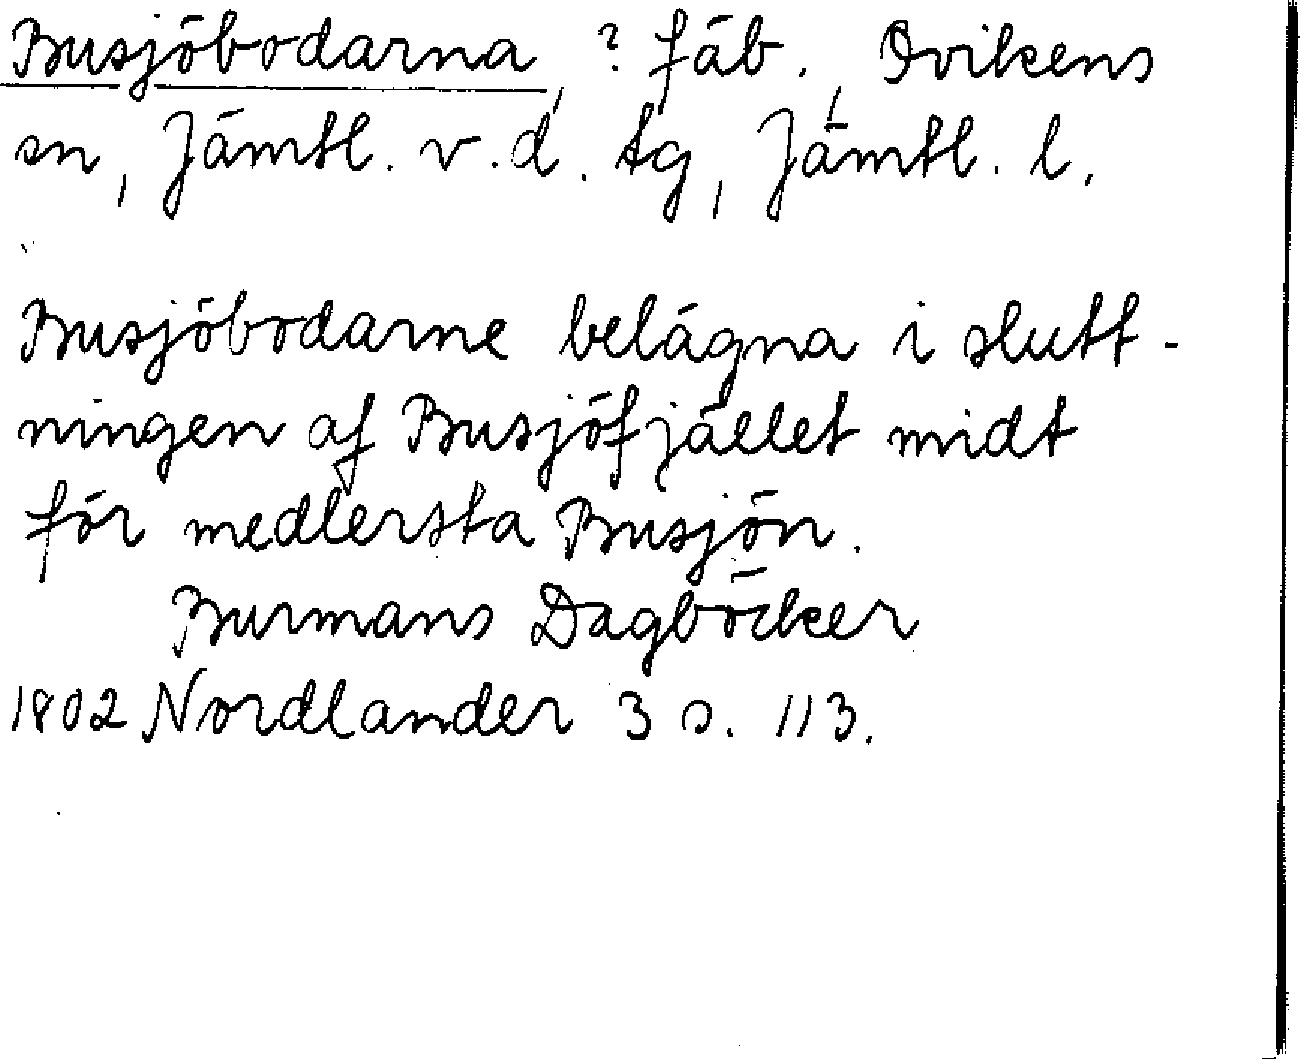 Busjöbodarna, ? fäb., Ovikens
sn, Jämtl. v. d. tg, Jämtl. l.
Busjöbodarne belägna i slutt-
ningen af Busjöfjället midt
för medlersta Busjön.
Burmans Dagböcker
1802 Nordlander 3 s. 113.